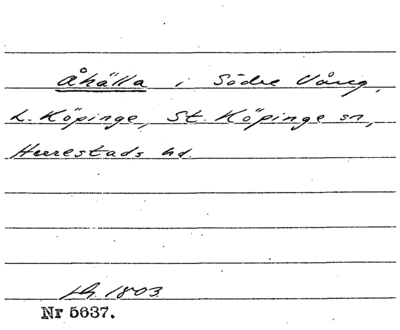 Åhälla i Södre Vång,
L. Köpinge, St. Köpinge sn,
Herrestads hd.
1803.
Nr 5637.